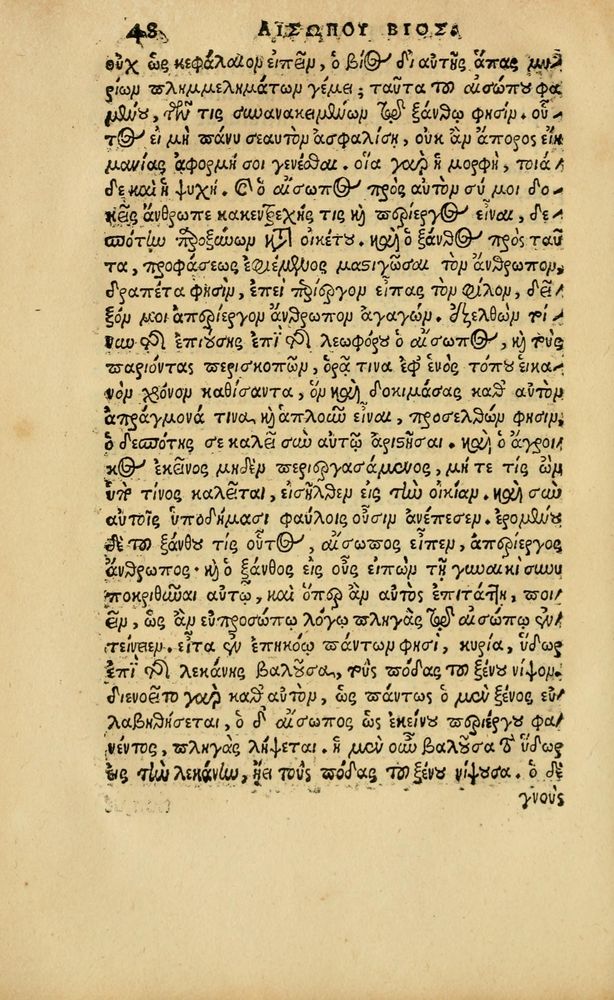 48 ΑΙΣΩΠΟΥ ΒΙΟΣ
οὐχ ὡς κεφάλαιον εἰπεῖν, ὁ βίος δι αὐτῆς ἅπας μυ-
ρίων πλημμελημάτων γέμει; ταῦτα τοῦ αἰσώπου φα
μένου, τῶν τις συνανακειμένων τῷ ξάνθῳ φησίν. οὗ-
τος εἰ μὴ πάνυ σεαυτὸν ἀσφαλίσῃ, οὐκ ἂν ἄπορος εἰς
μανίας ἀφορμή σοι γενέσθαι. οἵα γὰρ ἡ μορφὴ, τοιά-
δε καὶ ἡ ψυχή. καὶ ὁ αἴσωπος πρὸς αὐτὸν σύ μοι δο-
κεῖς ἄνθρωπε κακεντρεχής τις καὶ περίεργος εἶναι, δε-
σπότην παροξύνων κατὰ οἰκέτου. καὶ ὁ ξάνθος πρὸς ταῦ
τα, προφάσεως ἐφιέμενος μαστιγῶσαι τὸν ἄνθρωπον,
δραπέτα φησὶν, ἐπεὶ περίεργον εἶπας τὸν φίλον, δεῖ-
ξόν μοι ἀπερίεργον ἄνθρωπον ἀγαγών. ἐξελθὼν τοί-
νυν τῆς ἐπιούσης ἐπὶ τῆς λεωφόρου ὁ αἴσωπος, καὶ τοὺς
παριόντας περισκοπῶν, ὁρᾷ τινα ἐφ ἑνὸς τόπου ἱκα-
νὸν χρόνον καθίσαντα, ὃν καὶ δοκιμάσας καθ αὑτὸν
ἀπράγμονά τινα καὶ ἁπλοῦν εἶναι, προσελθὼν φησιν,
ὁ δεσπότης σε καλεῖ σὺν αὐτῷ ἀριστῆσαι. καὶ ὁ ἄγροι-
κος ἐκεῖνος μηδὲν περιεργασάμενος, μή τε τίς ὢν
ὑπό τίνος καλεῖται, εἰσῆλθεν εἰς τὴν οἰκίαν. καὶ σὺν
αὐτοῖς ὑποδήμασι φαύλοις οὖσιν ἀνέπεσεν. ἐρομένου
δὲ τοῦ ξάνθου τίς οὗτος, αἴσωπος εἶπεν, ἀπερίεργος
ἄνθρωπος. καὶ ὁ ξάνθος εἰς οὖς εἰπὼν τῇ γυναικὶ συνυ
ποκριθῆναι αὐτῷ, καὶ ὅπερ ἂν αὐτὸς ἐπιτάττῃ, ποι-
εῖν, ὡς ἂν εὐπροσώπῳ λόγῳ πληγὰς τῷ αἰσώπῳ ἐν-
τείνειεν. εἶτα ἐν ἐπηκόῳ πάντων φησὶ, κυρία, ὕδωρ
ἐπὶ τῆς λεκάνης βαλοῦσα, τοὺς πόδας τοῦ ξένου νίψον.
διενοεῖτο γὰρ καθ αὑτὸν, ὡς πάντως ὁ μὲν ξένος εὐ-
λαβηθήσεται, ὁ δ αἴσωπος ὡς ἐκείνου περιέργου φα-
νέντος, πληγὰς λήψεται. ἡ μὲν οὖν βαλοῦσα τὸ ὕδωρ
εἰς τὴν λεκάνην, ᾔει τοὺς πόδας τοῦ ξένου νίψουσα. ὁ δὲ
γνοὺς